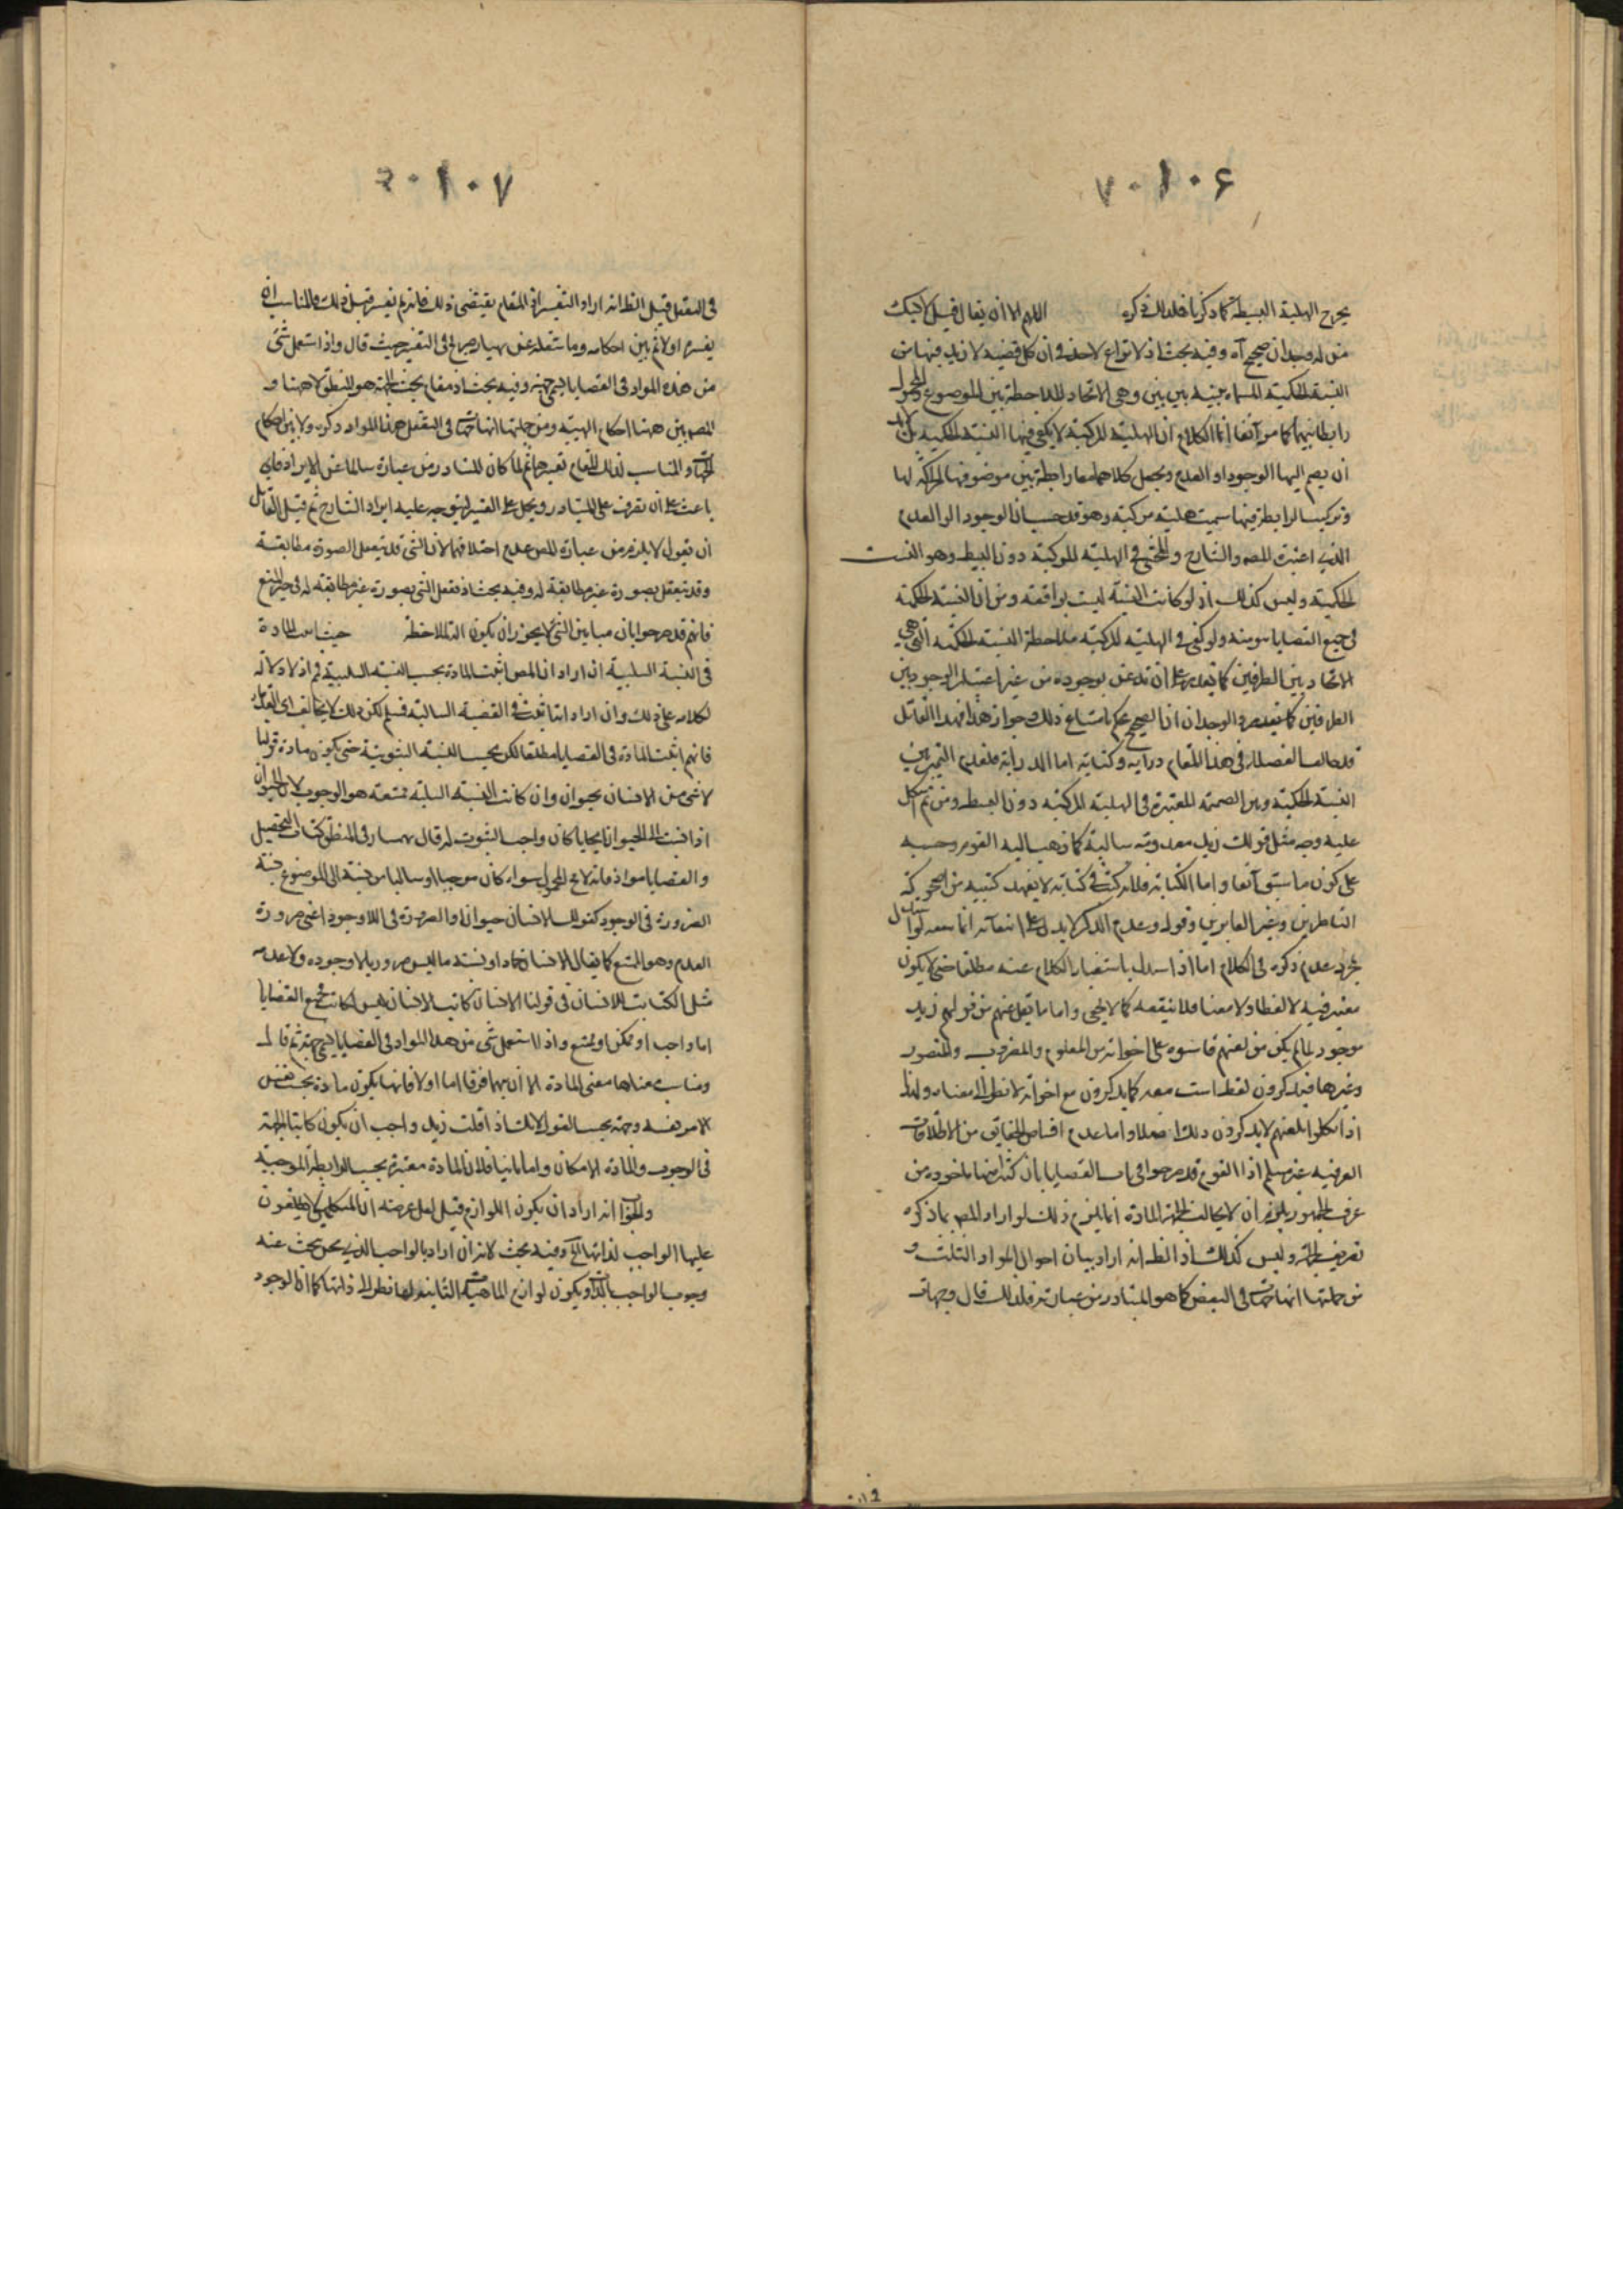 ۱۰۶
يخرج الهلية البسيطة كما ذكرنا فلذلك ذكره اللهم الا ان يقال قيل لا يشك
من له وجدان صحيح آه وفيه بحث اذ لا نزاع لاحد في ان كل قضية لا بد فيها من
النسبة الحكمية المسماة بنسبة بين بين وهي الاتحاد للملاحظة بين الموضوع والمحمول
رابطا بينهما كما مر آنفا انما الكلام ان الهلية المركبة لا يكفي فيها النسبة الحكمية بل لابد
ان يضم اليها الوجود او العدم ويجعل كلاهما معا رابطة بين موضوعها
وتركيب الرابطة فيها سميت هلية مركبة وهو قد حسب ان الوجود او العدم
الذي اعتبره المصه والشارح والمحشي في الهلية المركبة دون البسيطة وهو النسبة
الحكمية وليس كذلك اذ لو كانت النسبة ليست بواقعة ومن ان النسبة الحكمية
في جميع القضايا سوية ولو كفى في الهلية المركبة ملاحظة النسبة الحكمية التي هي
الاتحاد بين الطرفين كما
الطرفين كما الوجدان ان الصحيح يحكم بامتناع ذلك وجواز هذا فهذا القائل
قد خالف الفضلاء في هذا المقام دراية وكتابة اما الدراية فلعدم التمييز بين
النسبة الحكمية وبين الضميمة المعتبرة في الهلية المركبة دون البسيطة ومن ثم اشكل
عليه وجه مثل قولك زيد معدوم سالبة كما ذهب اليه القوم وحسبه
على كون ما سبق آنفا واما الكتابة فلانه كتب في كتابه لا يعهد كتبه من
الناظرين وغير العابرين وقوله وعدم الذكر لا يدل على انتفائه انما
مجرد عدم ذكره في الكلام اما اذا استدل باستغناء الكلام عنه مطلقا حتى لا يكون
معتبر فيه لا لفظا ولا معنا فلا ينفعه كما لا يخفى واما ما نقل عنهم من قولهم زيد
موجود لما لم يكن من لغتهم قاسوه على اخواته من المعلوم والمضروب والمنصور
وغيرها فيذكرون لفظ است معه كما يذكرون مع اخواته لا نظرا الى معناه ولذا
اذا تكلموا بلغتهم لا يذكرون ذلك اصلا واما عدم اقتناص الحقايق من الاطلاقات
العرفية غير مسلم اذ القوم قد صرحوا في باب القضايا بان كثيرا منها مأخوذة من
عرف الجمهور يلزم ان لا يخالف الجهة المادة انما يلزم ذلك لو اراد المصه بما ذكره
تعريف الجهة وليس كذلك اذ الظه انه اراد بيان احوال المواد الثلث و
من جملتها انها جهات في التعقل كما هو المتبادر من عبارته فلذلك قال وجهات
۱۰۷
في التعقل قيل الظه انه اراد التفسير اذ المقام يقتضي ذلك فانه لم يفسر قبل ذلك والمناسب ان
يفسره اولا ثم يبين احكامه وما نقله عن بهمنيار صريح في التفسير حيث قال واذا استعمل شئ
من هذه المواد في القضايا يسمى جهة وفيه بحث اذ مقام بحث الجهة هو المنطق لا ههنا و
المصه بين ههنا احكام الهيئة ومن جملتها انها جهات في التعقل هذا المواد ذكره ولا بين احكام
الجهات والمناسب لذلك المقام تفسيرها ثم لما كان المتبادر من عبارة سالما عن الايراد فاي
باعث على ان يصرف على المتبادر ويحمل على التفسير ليتوجه عليه ايراد الشارح ثم قيل للقائل
ان يقول لا يلزم من عبارة المص عدم اختلافها لان الشئ قد يتعقل الصورة مطابقة
وقد يتعقل بصورة غير مطابقة له وفيه بحث اذ تعقل الشئ بصورة غير مطابقة له في حيز المنع
فانهم قد صرحوا بان مباين الشئ لا يجوز ان يكون آلة لملاحظته حيث المادة
في النسبة السلبية ان اراد ان المص اثبت المادة بحسب النسبة السلبية فم اذ لا دلالة
لكلامه على ذلك وان اراد انها تثبت في القضية السالبة فسلم لكن ذلك لا يخالف راي القدماء
فانهم اثبت المادة في القضايا مطلقا لكن بحسب النسبة الثبوتية حتى يكون مادة قولنا
لا شئ من الانسان بحيوان وان كانت النسبة السلبية ممتنعة هو الوجوب لان الحيوان
اذا نسبت الى الحيوان ايجابا كان واجب الثبوت له قال بهمنيار في المنطق كتاب التحصيل
والقضايا مواد فانه لا يخ المحمول سواء كان موجبا او سالبا من نسبة الى الموضوع نسبة
الضرورة في الوجود كقولك الانسان حيوان او الضرورة في اللاوجود اعني ضرورة
العدم وهو الممتنع كما يقال الانسان جماد او نسبة ما ليس ضروريا لا وجوده ولا عدمه
مثل الكتابة للانسان في قولنا الانسان كاتب الانسان ليس بكاتب فجميع القضايا
اما واجب او ممكن او ممتنع واذا استعمل شئ من هذا المواد في القضايا يسمى جهة ثم قال
ومناسب معناها معنى المادة الا ان بينهما فرقا اما اولا فانها يكون مادة بحسب نفس
الامر نفسه وجهة بحسب القول لانك اذا قلت زيد واجب ان يكون كاتبا الجهة
في الوجوب والمادة الامكان واما ثانيا فلان المادة معتبرة بحسب الرابطة الموجبة
والجواب انه اراد ان يكون اللوازم قيل لعل غرضه ان المتكلمين لا يطلقون
عليها الواجب لذاتها الخ وفيه بحث لانه ان اراد بالواجب الذي يحن بحث عنه
وجوب الواجب بالذات ويكون لوازم الماهية الثابتة لها نظرا الى ذاتها كما ان الوجود